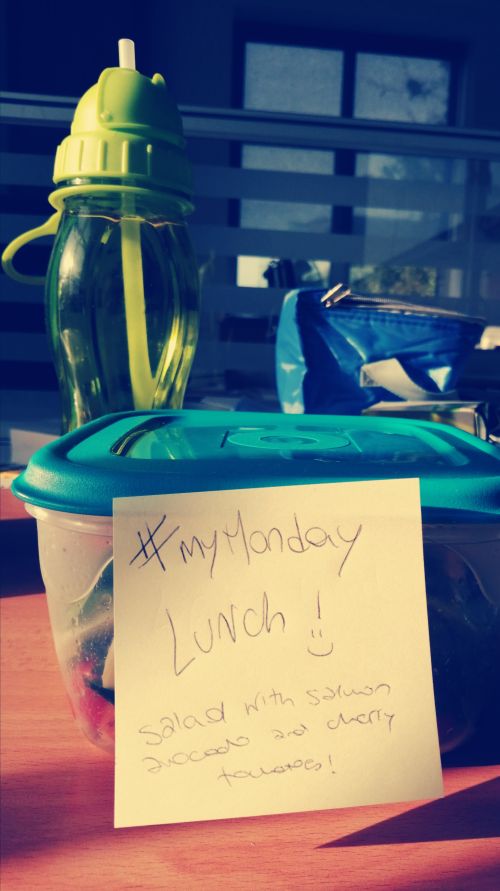 #myMonday
Lunch!
Salad with salmon
avocado and cherry
tomatoes!